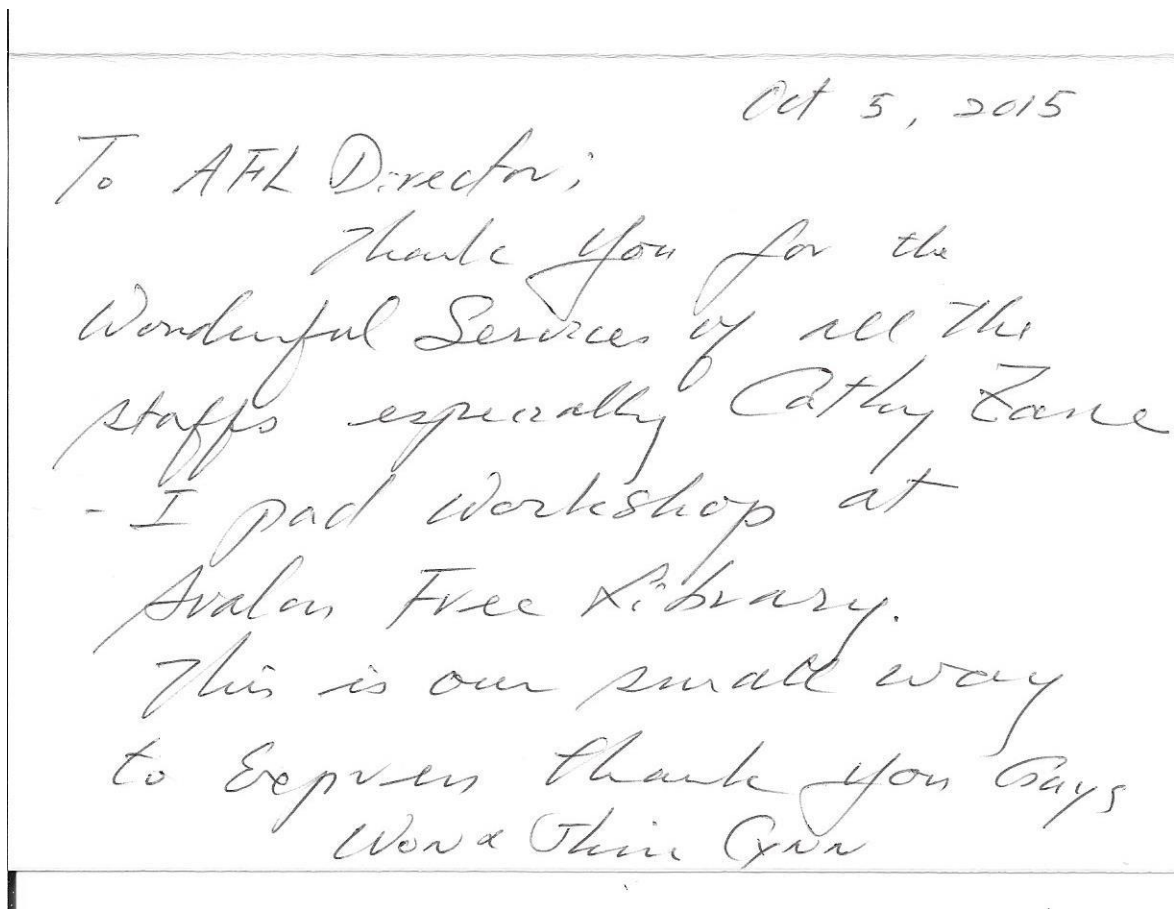 Oct 5, 2015
To AFL Director;
Thank you for the
Wonderful Services of all the
staffs especially Cathy Zane
- I pad workshop at
Avalon Free Library.
This is our small way
to Express thank you Guys
Won &